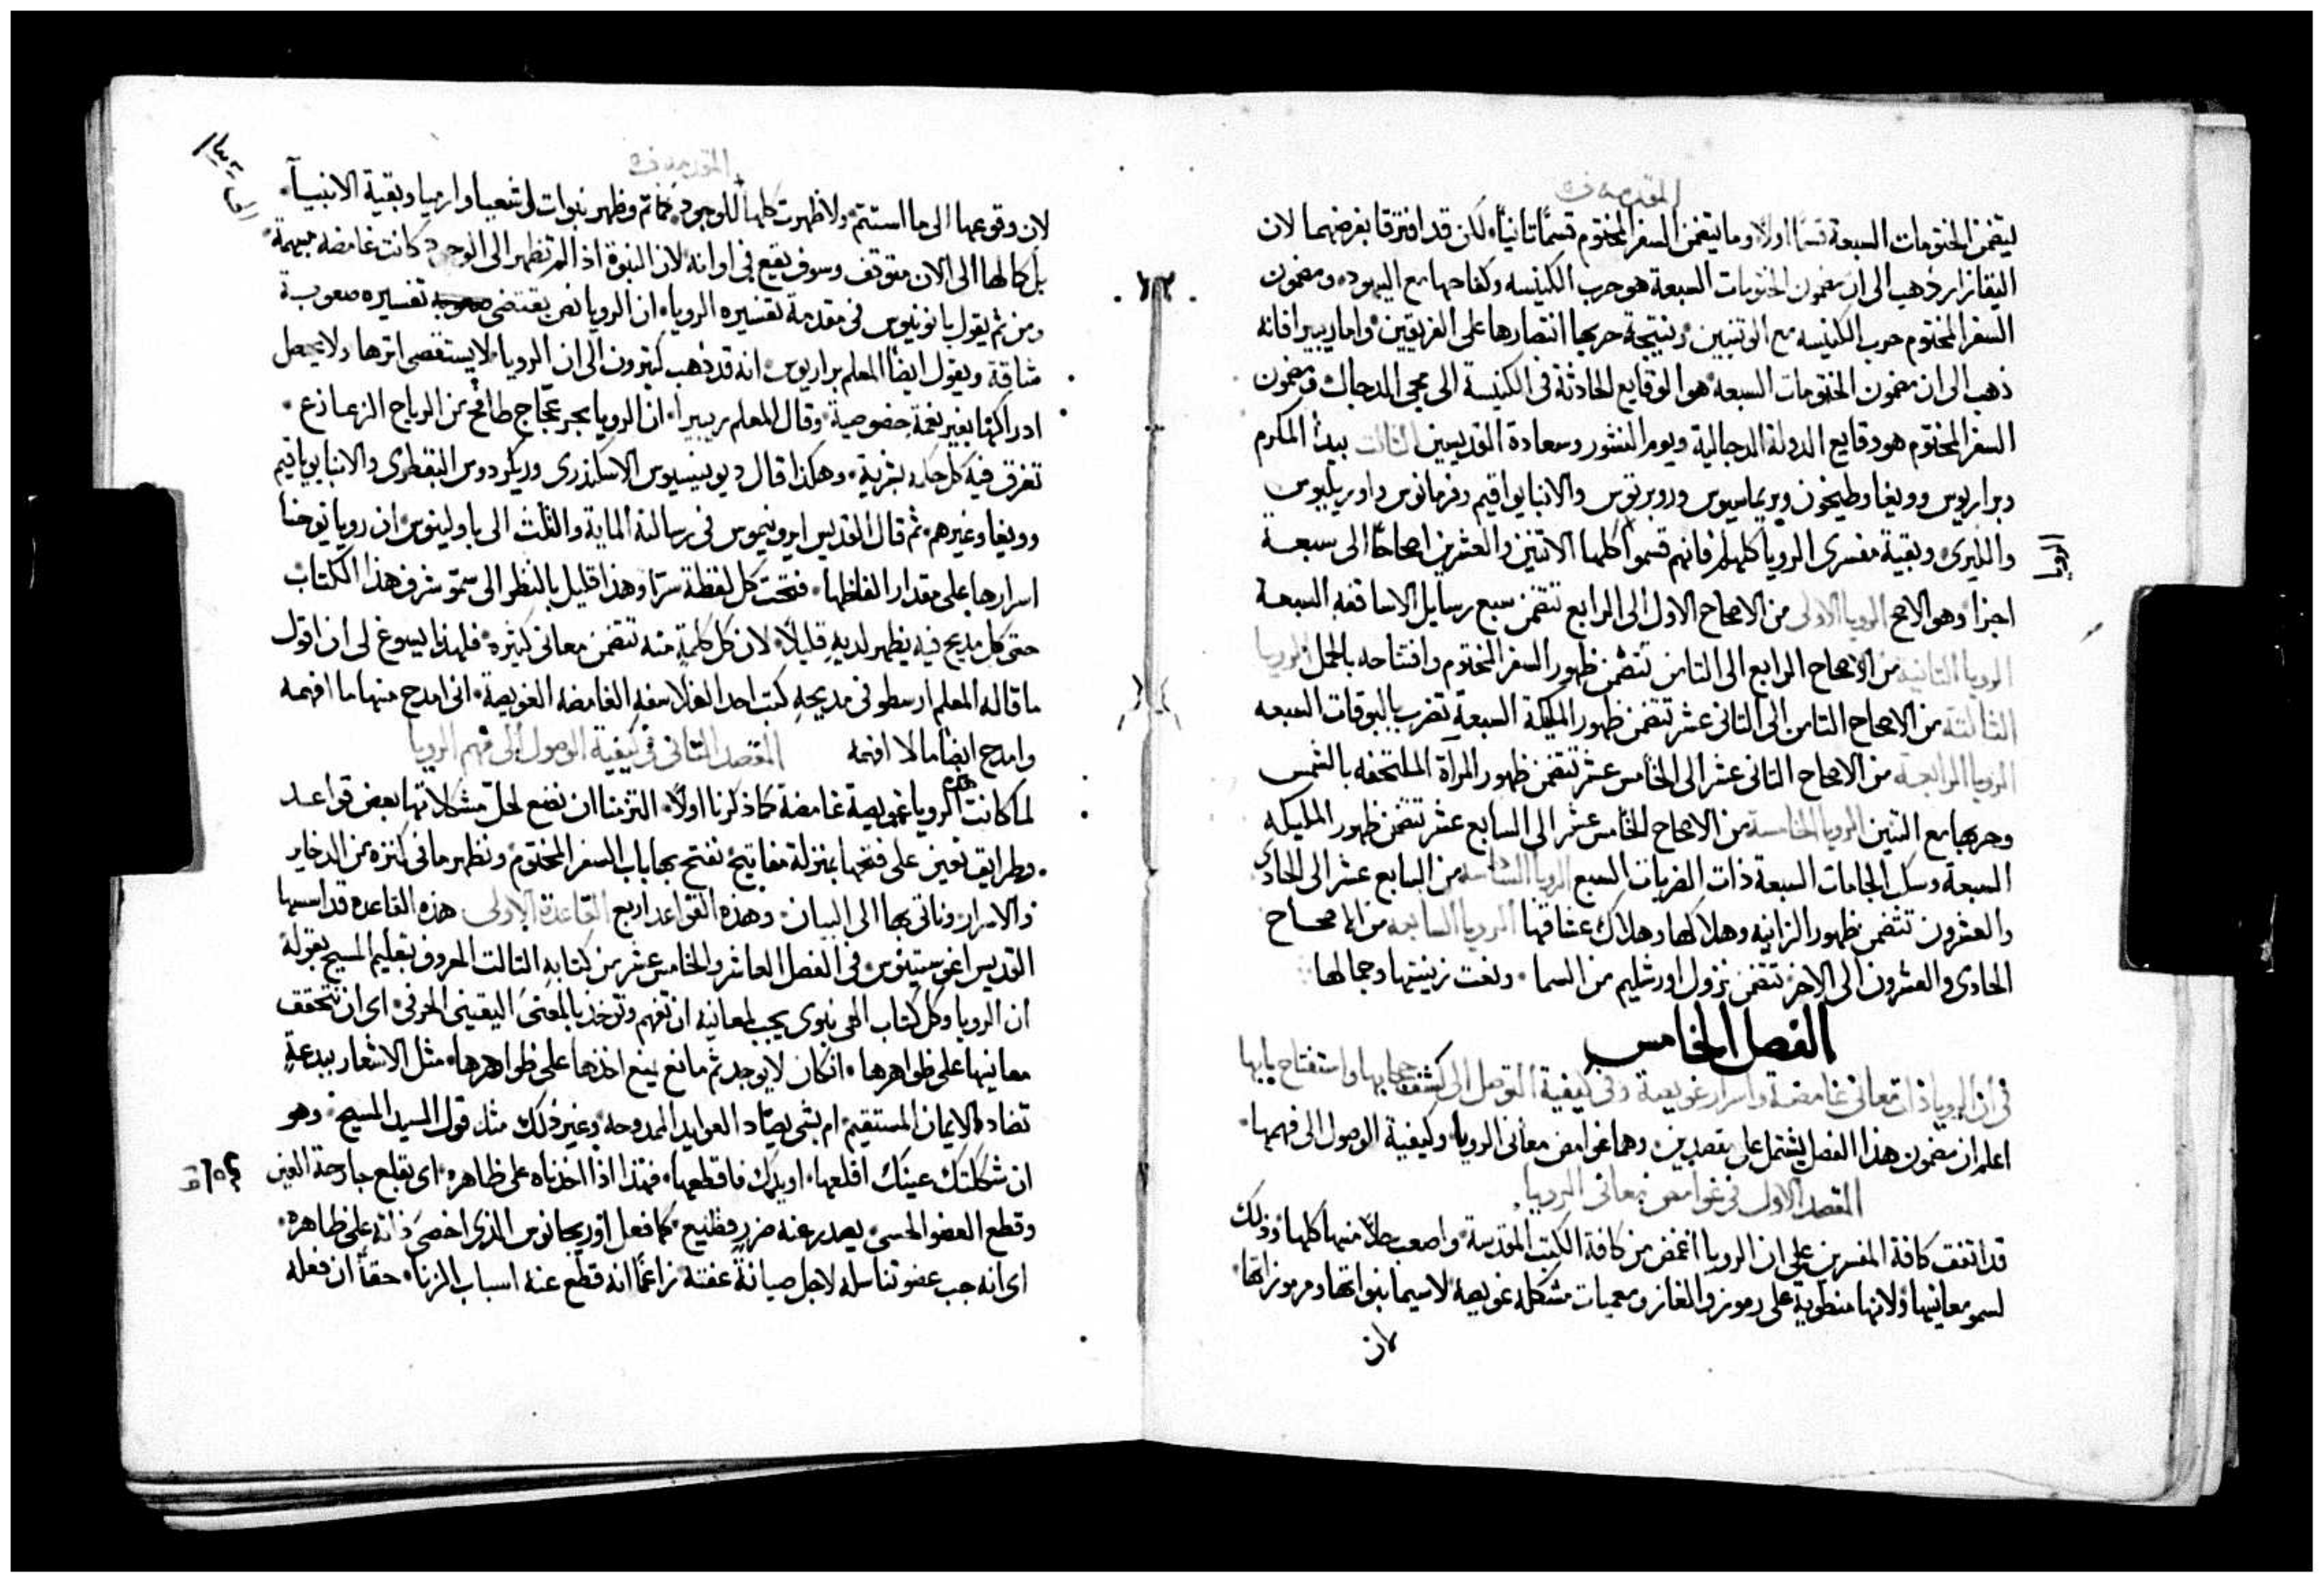 المقدمه ف
يتضمن الختومات السبعة قسمًا اولًا وما يتضمن السفر المختوم قسمًا ثانيًا لكن قد افترقا بغرضهما لان
اليقازار ذهب الى ان مضمون الختومات السبعة هو حرب الكنيسه وكفاحها مع اليهود ومضمون
السفر المختوم حرب الكنيسه مع الوتنيين ونتيجة حربها انتصارها على الفريقين واما ريبيرا فانه
ذهب الى ان مضمون الختومات السبعة هو الوقايع الحادثة فى الكنيسة الى مجى الدجال ومضمون
السفر المختوم هو وقايع الدولة الدجالية ويوم النشور وسعادة القديسين الثالث بيدا المكرم
وبراريوس وويغا وطيخون وبريماسيوس وروبرتوس والانبا يواقيم وفرمانوس واوريليوس
والليرى وبقية مفسرى الرويا كلهم فانهم قسموا كلها الاتنين والعشرين اصحاحًا الى سبعة
الرويا
اجزا وهو الاصح الرويا الاولى من الاصحاح الاول الى الرابع تتضمن سبع رسايل الاساقفه السبعة
الرويا الثانيه من الاصحاح الرابع الى الثامن تتضمن ظهور السفر المختوم وافتتاحه بالحمل الرويا
الثالثة من الاصحاح الثامن الى الثانى عشر تتضمن ظهور المليكة السبعة تضرب بالبوقات السبعه
الرويا الرابعة من الاصحاح الثانى عشر الى الخامس عشر تتضمن ظهور المراة الملتحفه بالشمس
وحربها مع التنين الرويا الخامسة من الاصحاح الخامس عشر الى السابع عشر تتضمن ظهور المليكه
السبعة وسكل الجامات السبعة ذات الضربات السبع الرويا السادسه من السابع عشر الى الحادى
والعشرون تتضمن ظهور الزانيه وهلاكها وهلاك عشاقها الرويا السابعه من الاصحاح
الحادى والعشرون الى الاخر تتضمن نزول اورشليم من السما ونعت زينتها وجمالها
الفصل الخامس
فى ان الرويا ذات معانى غامضة واسرار غويصة وفى كيفية التوصل الى كشف حجابها واستفتاح بابها
اعلم ان مضمون هذا الفصل يشتمل على مقصدين وهما غوامض معانى الرويا وكيفية الوصول الى فهمها
المقصد الاول فى غوامض معانى الرويا
قد اتفقت كافة المفسرين على ان الرويا اغمض من كافة الكتب المقدسة واصعب حلًا منها كلها وذلك
لسمو معانيها ولانها منطوية على رموز والغاز ومعميات مشكله غويصة لاسيما بنواتها ومرموزاتها
لان
المقدمه ف
لان وقوعها الى ما استتم ولا ظهرت كلها للوجود فما تم وظهر بنوات اشعيا وارميا وبقية الانبيآ
بل كمالها الى الان متوقف وسوف يقع فى اوانه لان النبوة اذا لم تظهر الى الوجود كانت غامضه مبهمة
ومن ثم يقول بانونيوس فى مقدمة تفسيره الرويا ان الرويا نص يقتضى تفسيره صعوبة
شاقة ويقول ايضًا المعلم براريوس انه قد ذهب كثيرون الى ان الرويا لا يستقصى اثرها ولا يحصل
ادراكها بغير نعمة خصوصية وقال المعلم ريبيرا ان الرويا بحر عجاج طافح من الرياح الزعازع
تغرق فيه كل بشرية وهكذا قال ديونيسيوس الاسكندرى وريكردوس البقطرى والانبا يوياقيم
وويغا وغيرهم ثم قال القديس ايرونيموس فى رسالته الماية والثلث الى باولينوس ان رويا يوحنا
اسرارها على مقدار الفاظها فتحت كل لفظة سرًا وهذا قليل بالنظر الى سمو شرف هذا الكتاب
حتى كل مديح فيه يظهر لديه قليلًا لان كل كلمة منه تتضمن معانى كثيره فلهذا يسوغ لى ان اقول
ما قاله المعلم ارسطو فى مديحه كتب احد الفلاسفه الغامضه الغويصة انى امدح منها ما افهمه
وامدح ايضًا ما لا افهمه المقصد الثانى فى كيفية الوصول الى فهم الرويا
لما كانت هذه الرويا غويصة غامضة كما ذكرنا اولًا التزمنا ان نضع لحل مشكلاتها بعض قواعد
وطرايق تعين على فتحها بمنزلة مفاتيح نفتح بها باب السفر المختوم ونظهر ما فى كنزه من الدخاير
والاسرار وناتى بها الى البيان وهذه القواعد اربع القاعدة الاولى هذه القاعدة قد اسسها
القديس اغوستينوس فى الفصل العاشر والخامس عشر من كتابه الثالث المعروف بتعليم المسيح بقوله
ان الرويا وكل كتاب الهى بنوى يجب لمعانيه ان تفهم وتوخذ بالمعنى اليقينى الحرفى اى ان تتحقق
معانيها على ظواهرها ان كان لا يوجد ثم مانع يمنع اخذها على ظواهرها مثل الاشعار ببدعة
تضاد الايمان المستقيم ام بشى يضاد العوايد الممدوحه وغير ذلك مثل قول السيد المسيح وهو
ان شككتك عينك اقلعها او يدك فاقطعها فهذا اذا اخذناه على ظاهره اى بقلع جارحة العين
وقطع العضو الحسى يصدر عنه ضرر فظيع كما فعل اوريجانوس الذى اخصى ذاته على ظاهره
اى انه جب عضو تناسله لاجل صيانة عفته زاعمًا انه قطع عنه اسباب الزنا حقًا ان فعله